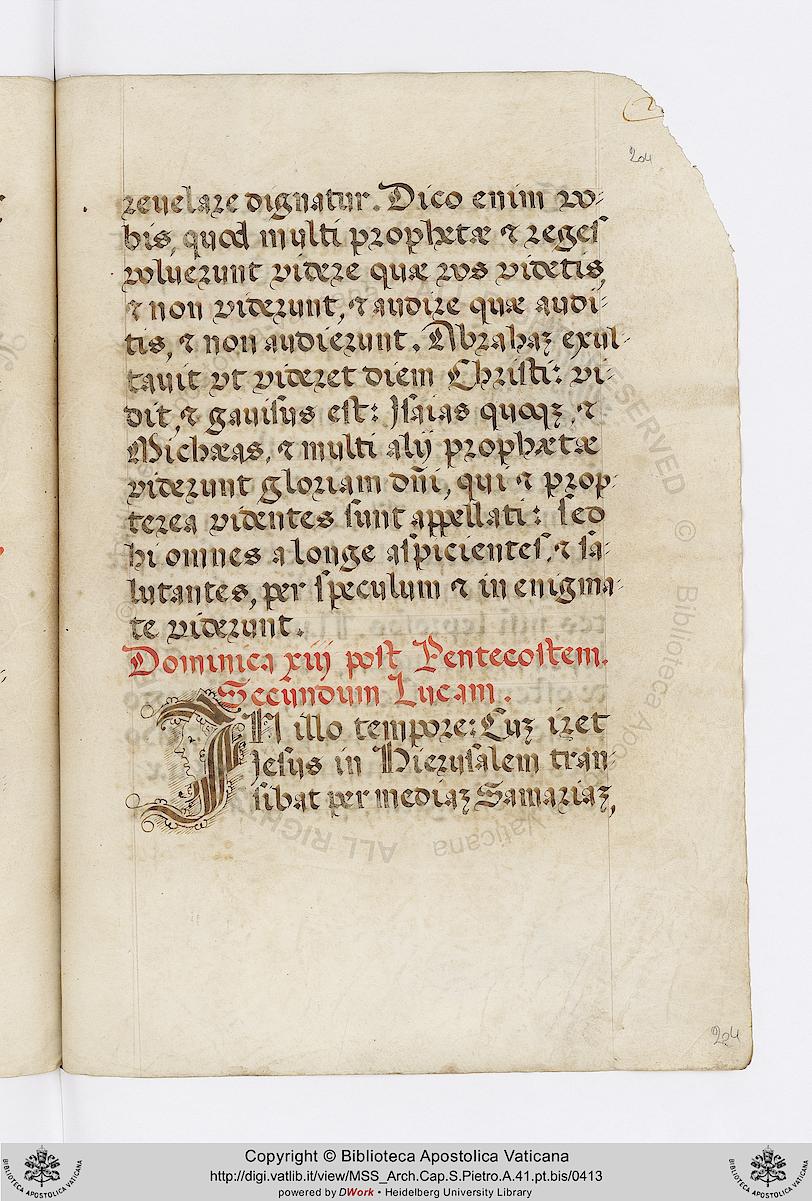 204
reuelare dignatur. Dico enim vo-
bis, quod multi prophetæ & reges
voluerunt videre quæ vos videtis,
& non viderunt, & audire quæ audi-
tis, & non audierunt. Abrahaz exul-
tauit vt videret diem Christi: vi-
dit, & gauisus est: Isaias quoqz, &
Michæas, & multi alij prophætæ
viderunt gloriam dñi, qui & prop-
terea videntes sunt appellati: sed
hi omnes a longe aspicientes, & sa-
lutantes, per speculum & in enigma-
te viderunt.
Dominica xiij post Pentecostem.
Secundum Lucam.
IN illo tempore: Cuz iret
Jesus in Hierusalem tran-
sibat per mediaz Samariaz,
204
Copyright © Biblioteca Apostolica Vaticana
http://digi.vatlib.it/view/MSS_Arch.Cap.S.Pietro.A.41.pt.bis/0413
powered by DWork • Heidelberg University Library